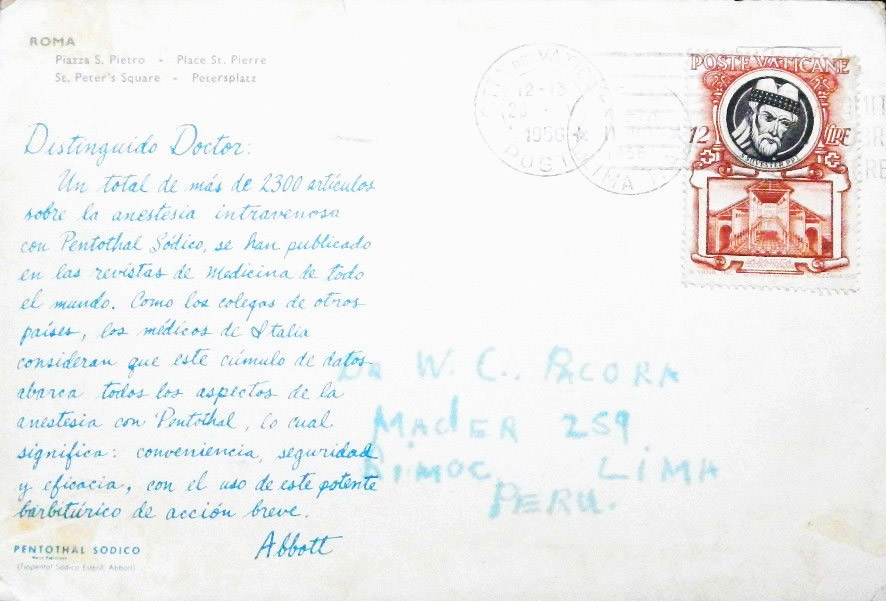 ROMA
Piazza S. Pietro - Place St. Pierre
St. Peter's Square - Petersplatz
POSTE VATICANE
12 LIRE
12-13
1956
Distinguido Doctor:
Un total de más de 2300 artículos
sobre la anestesia intravenosa
con Pentothal Sódico, se han publicado
en las revistas de Medicina de todo
el mundo. Como los colegas de otros
países, los médicos de Italia
consideran que este cúmulo de datos
abarca todos los aspectos de la
anestesia con Pentothal, lo cual
significa: conveniencia, seguridad
y eficacia, con el uso de este potente
barbitúrico de acción breve.
Abbott
DR W. C. PACORA
MADER 259
RIMAC LIMA
PERU.
PENTOTHAL SODICO
(Tiopental Sódico Estéril, Abbott)